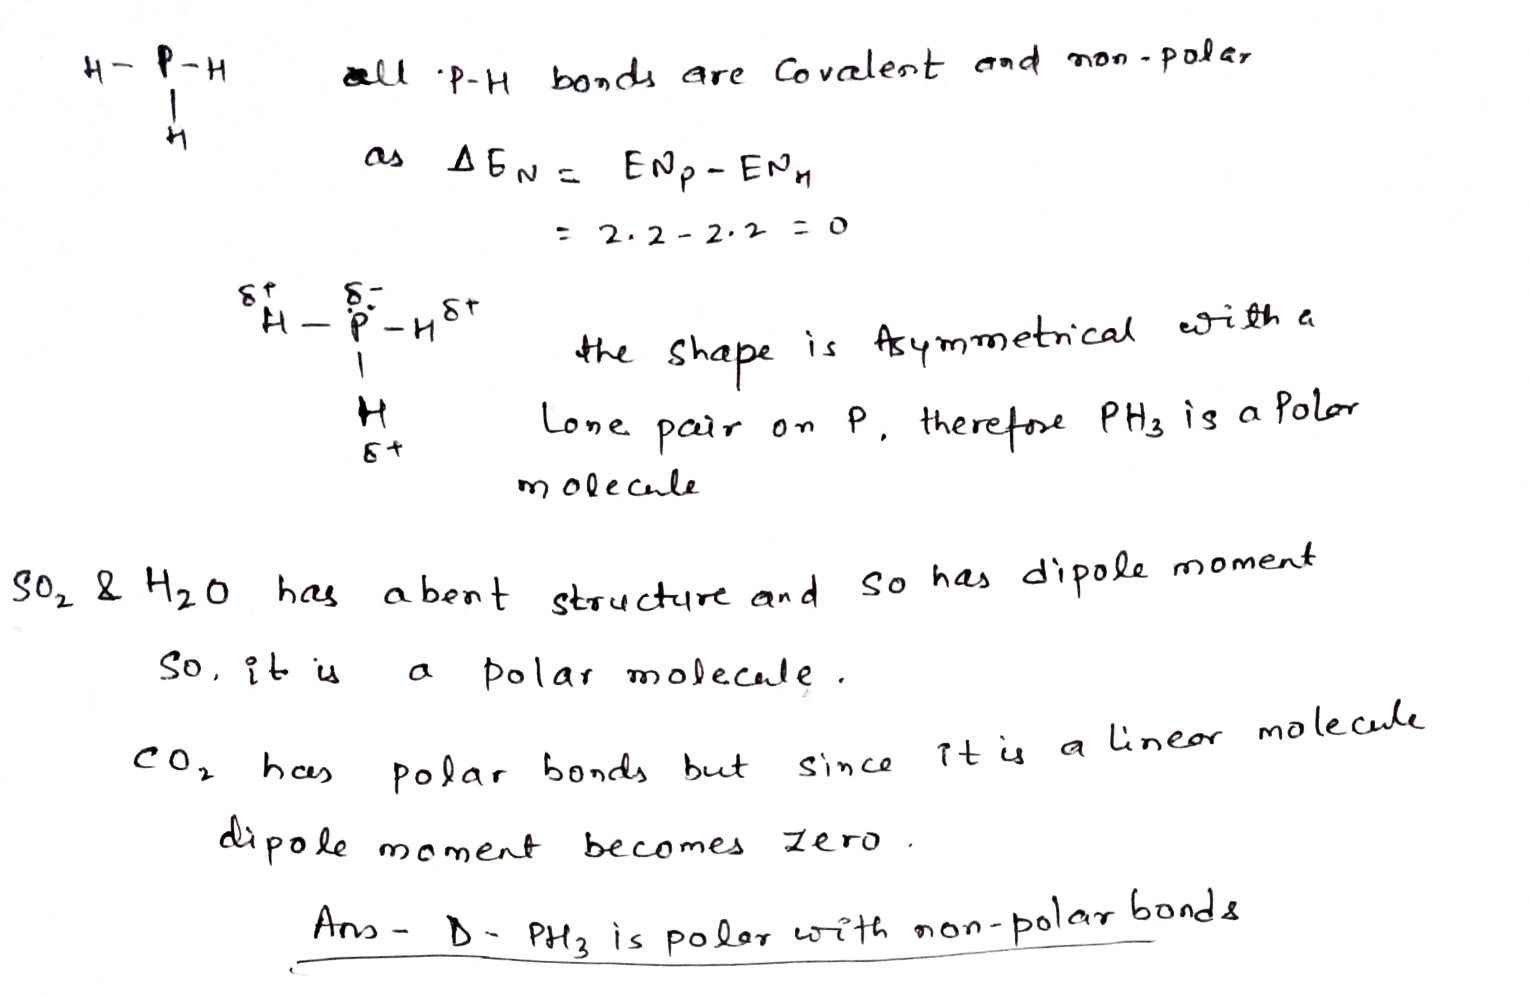 H - P - H
|
H
all P-H bonds are Covalent and non-polar
as ΔEN = ENP - ENH
= 2.2 - 2.2 = 0
δ+ δ- δ+
H - P̈ - H
|
H
δ+
the shape is Asymmetrical with a
Lone pair on P, therefore PH3 is a Polar
molecule
SO2 & H2O has a bent structure and so has dipole moment
So, it is a polar molecule.
CO2 has polar bonds but since it is a linear molecule
dipole moment becomes zero.
Ans - D - PH3 is polar with non-polar bonds